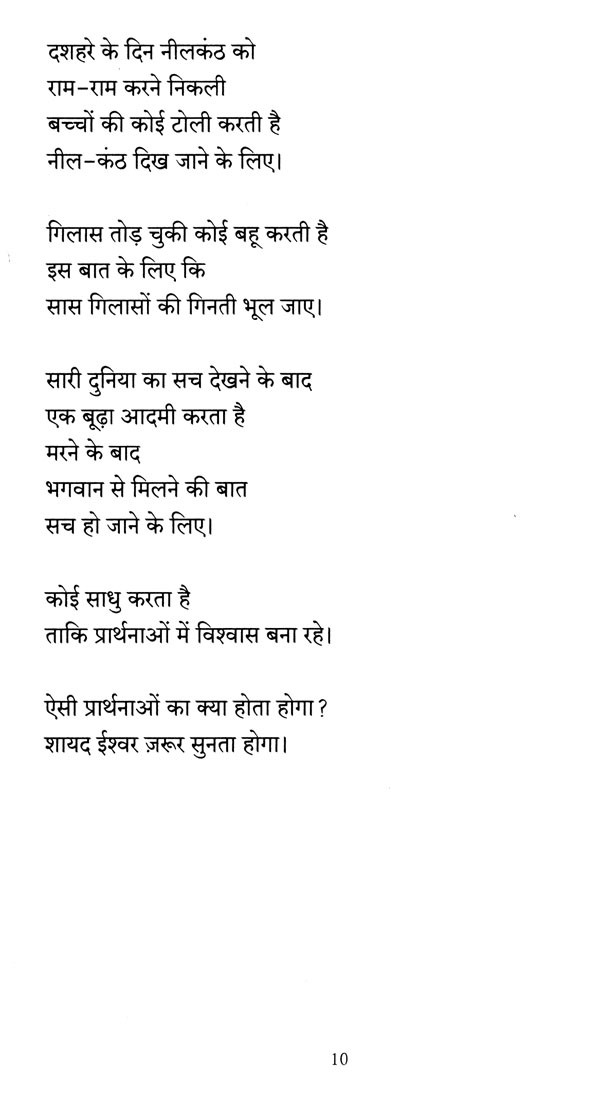 दशहरे के दिन नीलकंठ को
राम-राम करने निकली
बच्चों की कोई टोली करती है
नील-कंठ दिख जाने के लिए।
गिलास तोड़ चुकी कोई बहू करती है
इस बात के लिए कि
सास गिलासों की गिनती भूल जाए।
सारी दुनिया का सच देखने के बाद
एक बूढ़ा आदमी करता है
मरने के बाद
भगवान से मिलने की बात
सच हो जाने के लिए।
कोई साधु करता है
ताकि प्रार्थनाओं में विश्वास बना रहे।
ऐसी प्रार्थनाओं का क्या होता होगा?
शायद ईश्वर ज़रूर सुनता होगा।
10